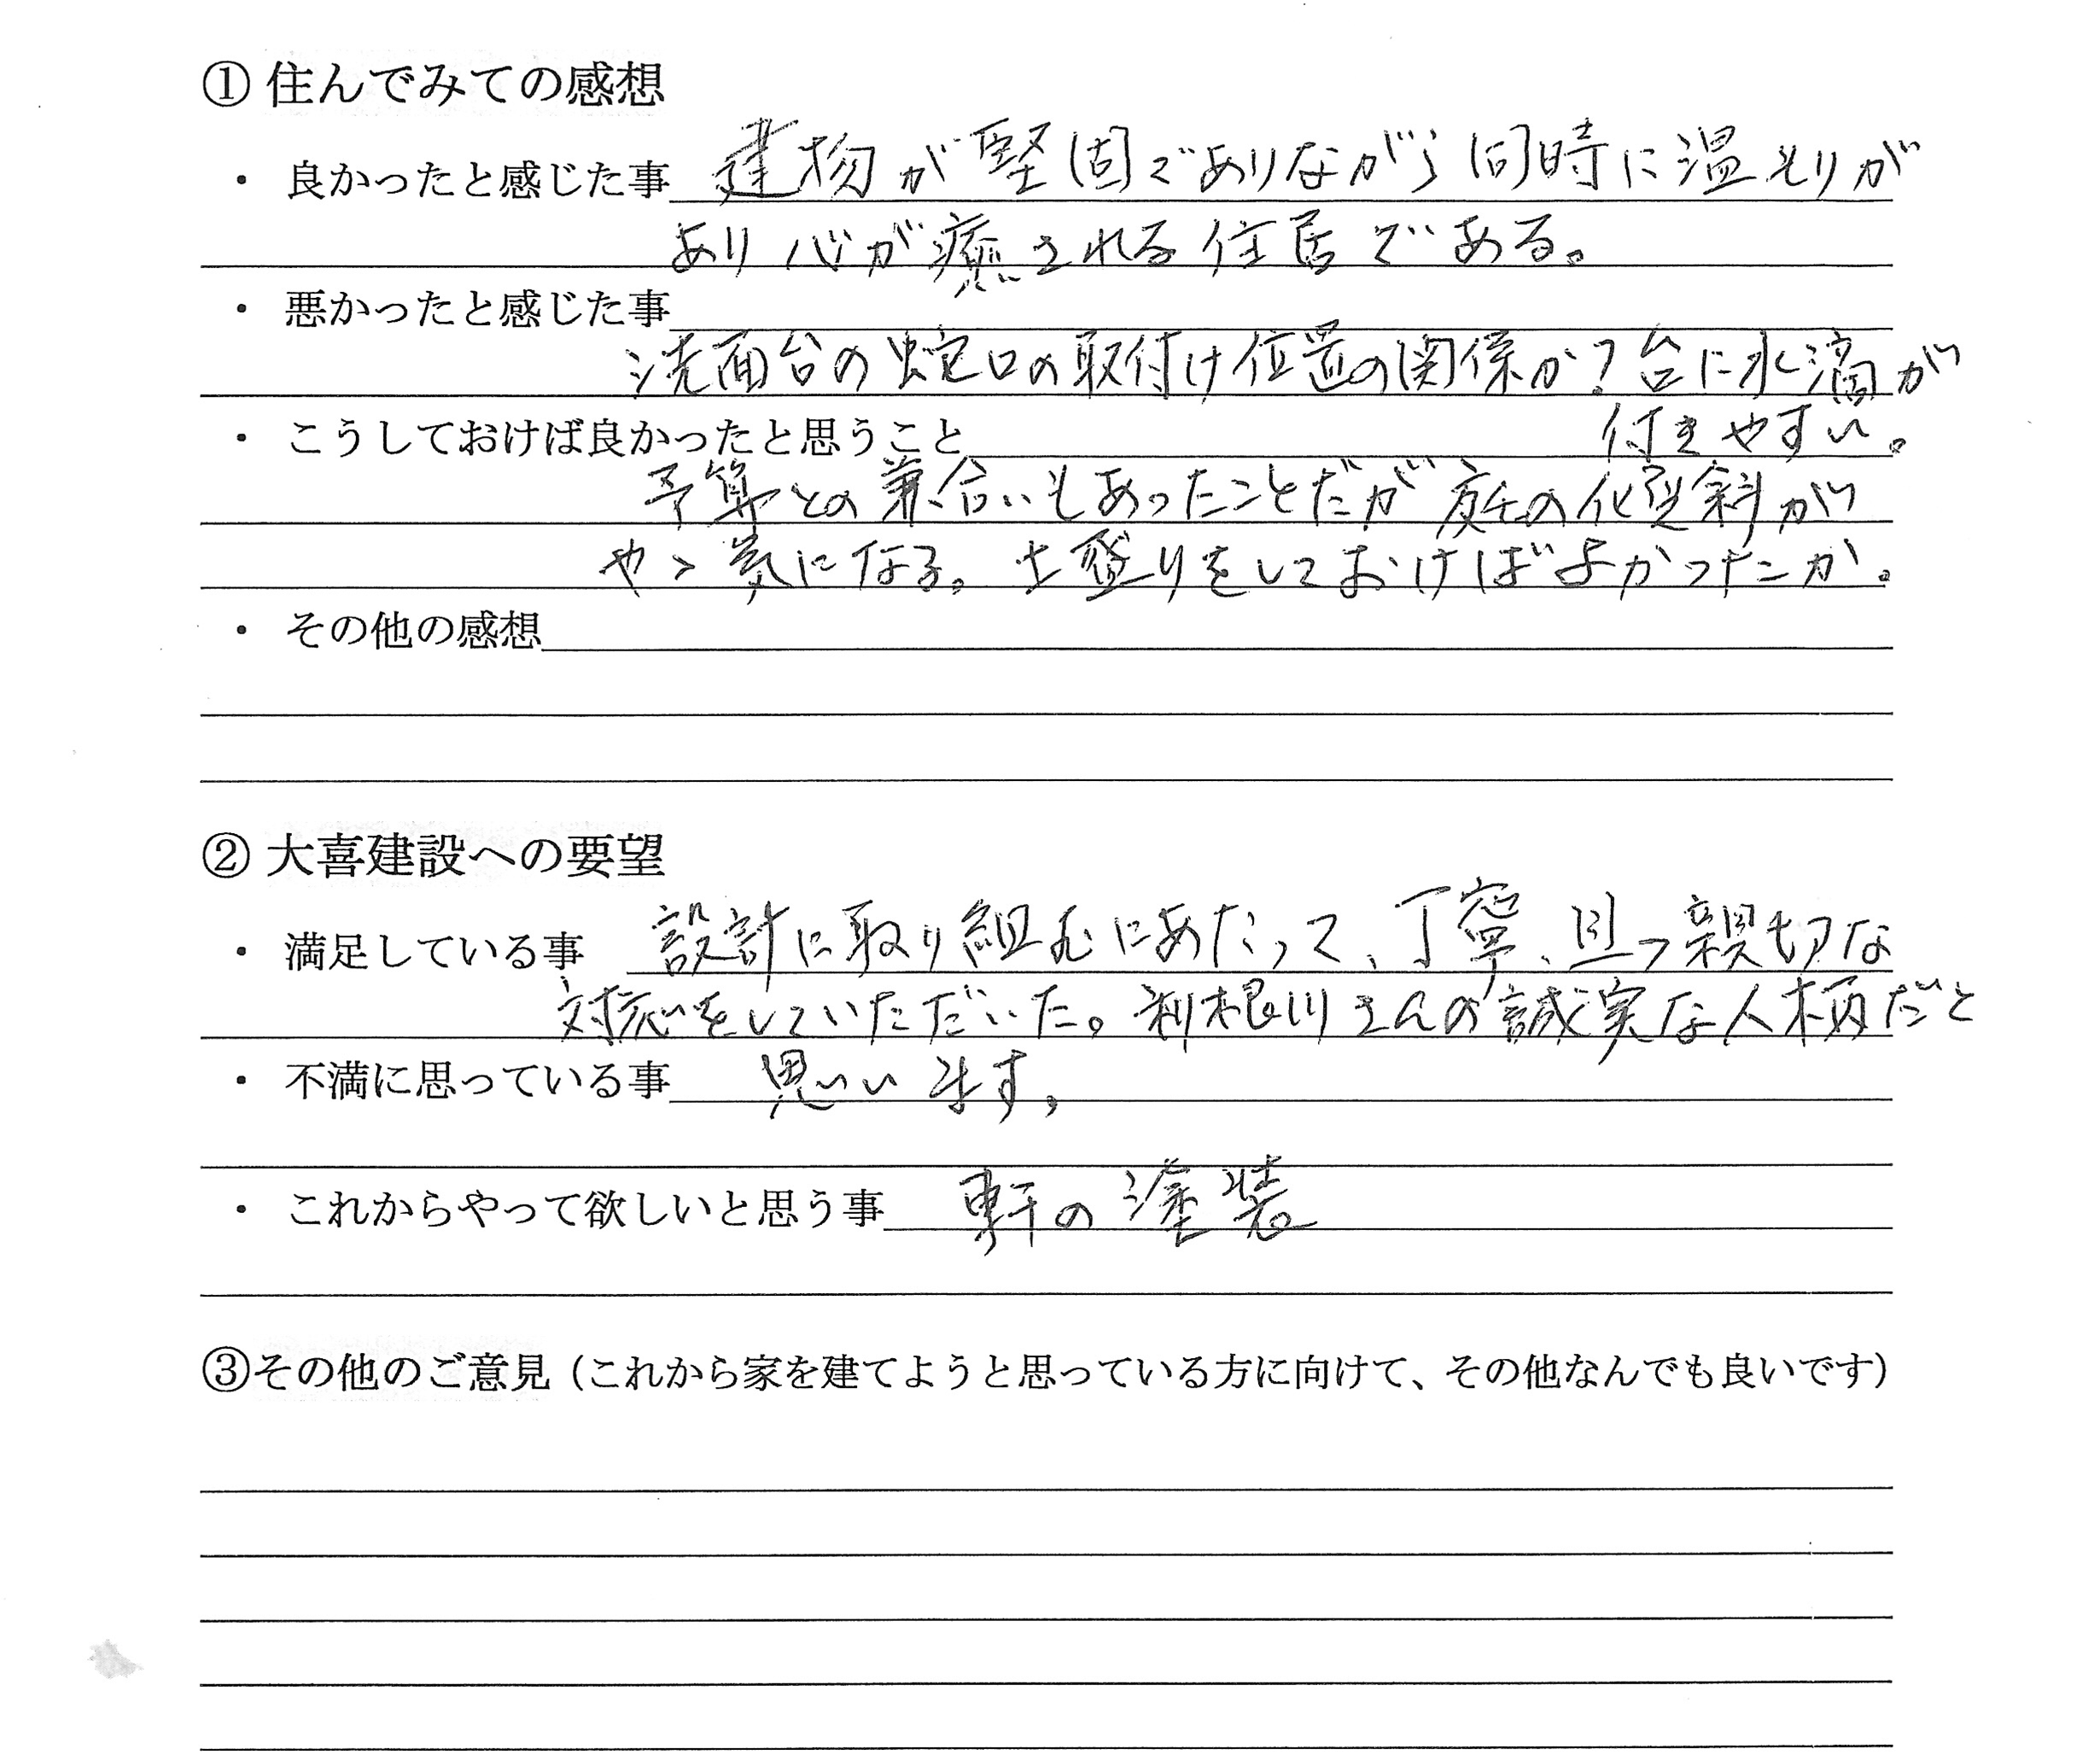 ① 住んでみての感想
・ 良かったと感じた事 建物が堅固でありながら同時に温もりが
あり心が癒される住居である。
・ 悪かったと感じた事
洗面台の蛇口の取付け位置の関係か?台に水滴が
・ こうしておけば良かったと思うこと 付きやすい。
予算との兼合いもあったことだが 庭の 傾斜が
やゝ気になる。土盛りをしておけばよかったか。
・ その他の感想
② 大喜建設への要望
・ 満足している事 設計に取り組むにあたって、丁寧、且つ親切な
対応をしていただいた。利根川さんの誠実な人柄だと
・ 不満に思っている事 思います。
・ これからやって欲しいと思う事 軒の塗装
③その他のご意見（これから家を建てようと思っている方に向けて、その他なんでも良いです）